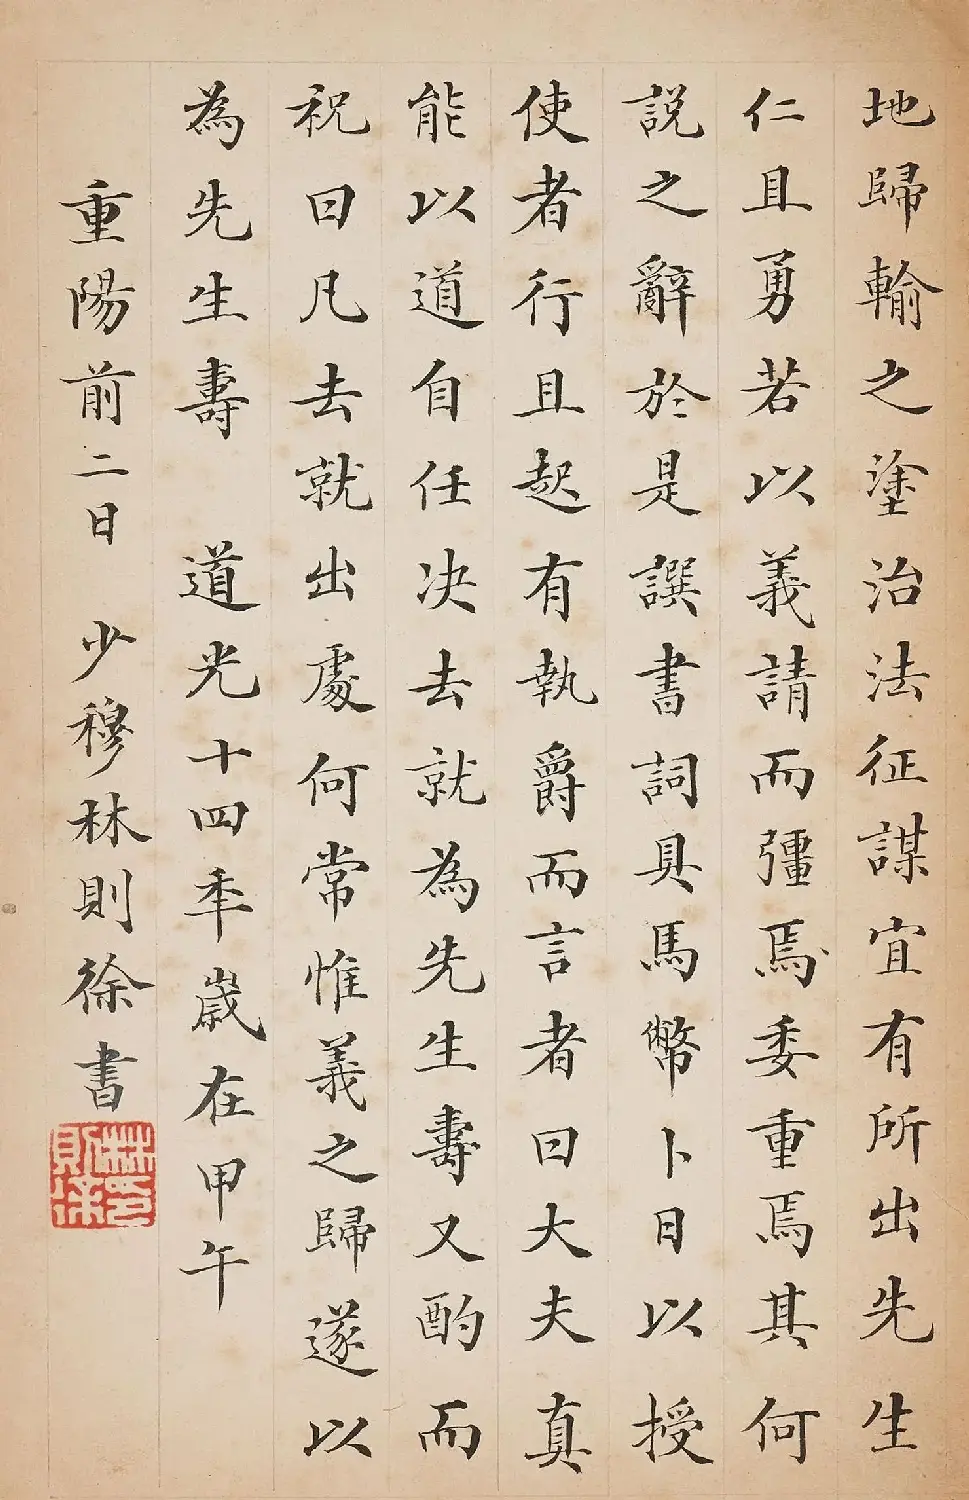 地歸輸之塗治法征謀宜有所出先生
仁且勇若以義請而彊焉委重焉其何
説之辭於是譔書詞具馬幣卜日以授
使者行且起有執爵而言者曰大夫真
能以道自任决去就為先生壽又酌而
祝曰凡去就出處何常惟義之歸遂以
為先生壽 道光十四年歲在甲午
重陽前二日 少穆林則徐書
林則徐印